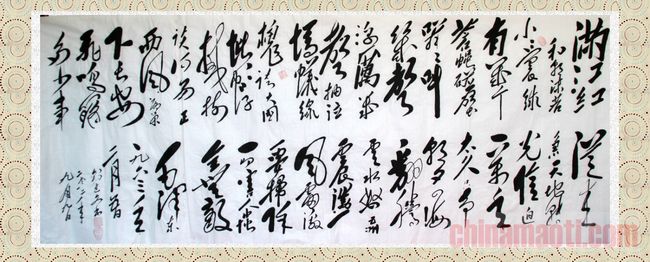 满江红
和郭沫若
小小寰球
有几个
苍蝇碰壁
嗡嗡叫
几声
凄厉几
声抽泣
蚂蚁缘
槐夸大国
蚍蜉
撼树
谈何易正
西风落叶
下长安
飞鸣镝
多少事
从来
急天地转
光阴迫
一万年
太久只争
朝夕四海
翻腾
云水怒五洲
震荡
风雷激
要扫除
一切害人虫
全无敌
毛泽东
一九六三年
九月九日
chinamaoti.com